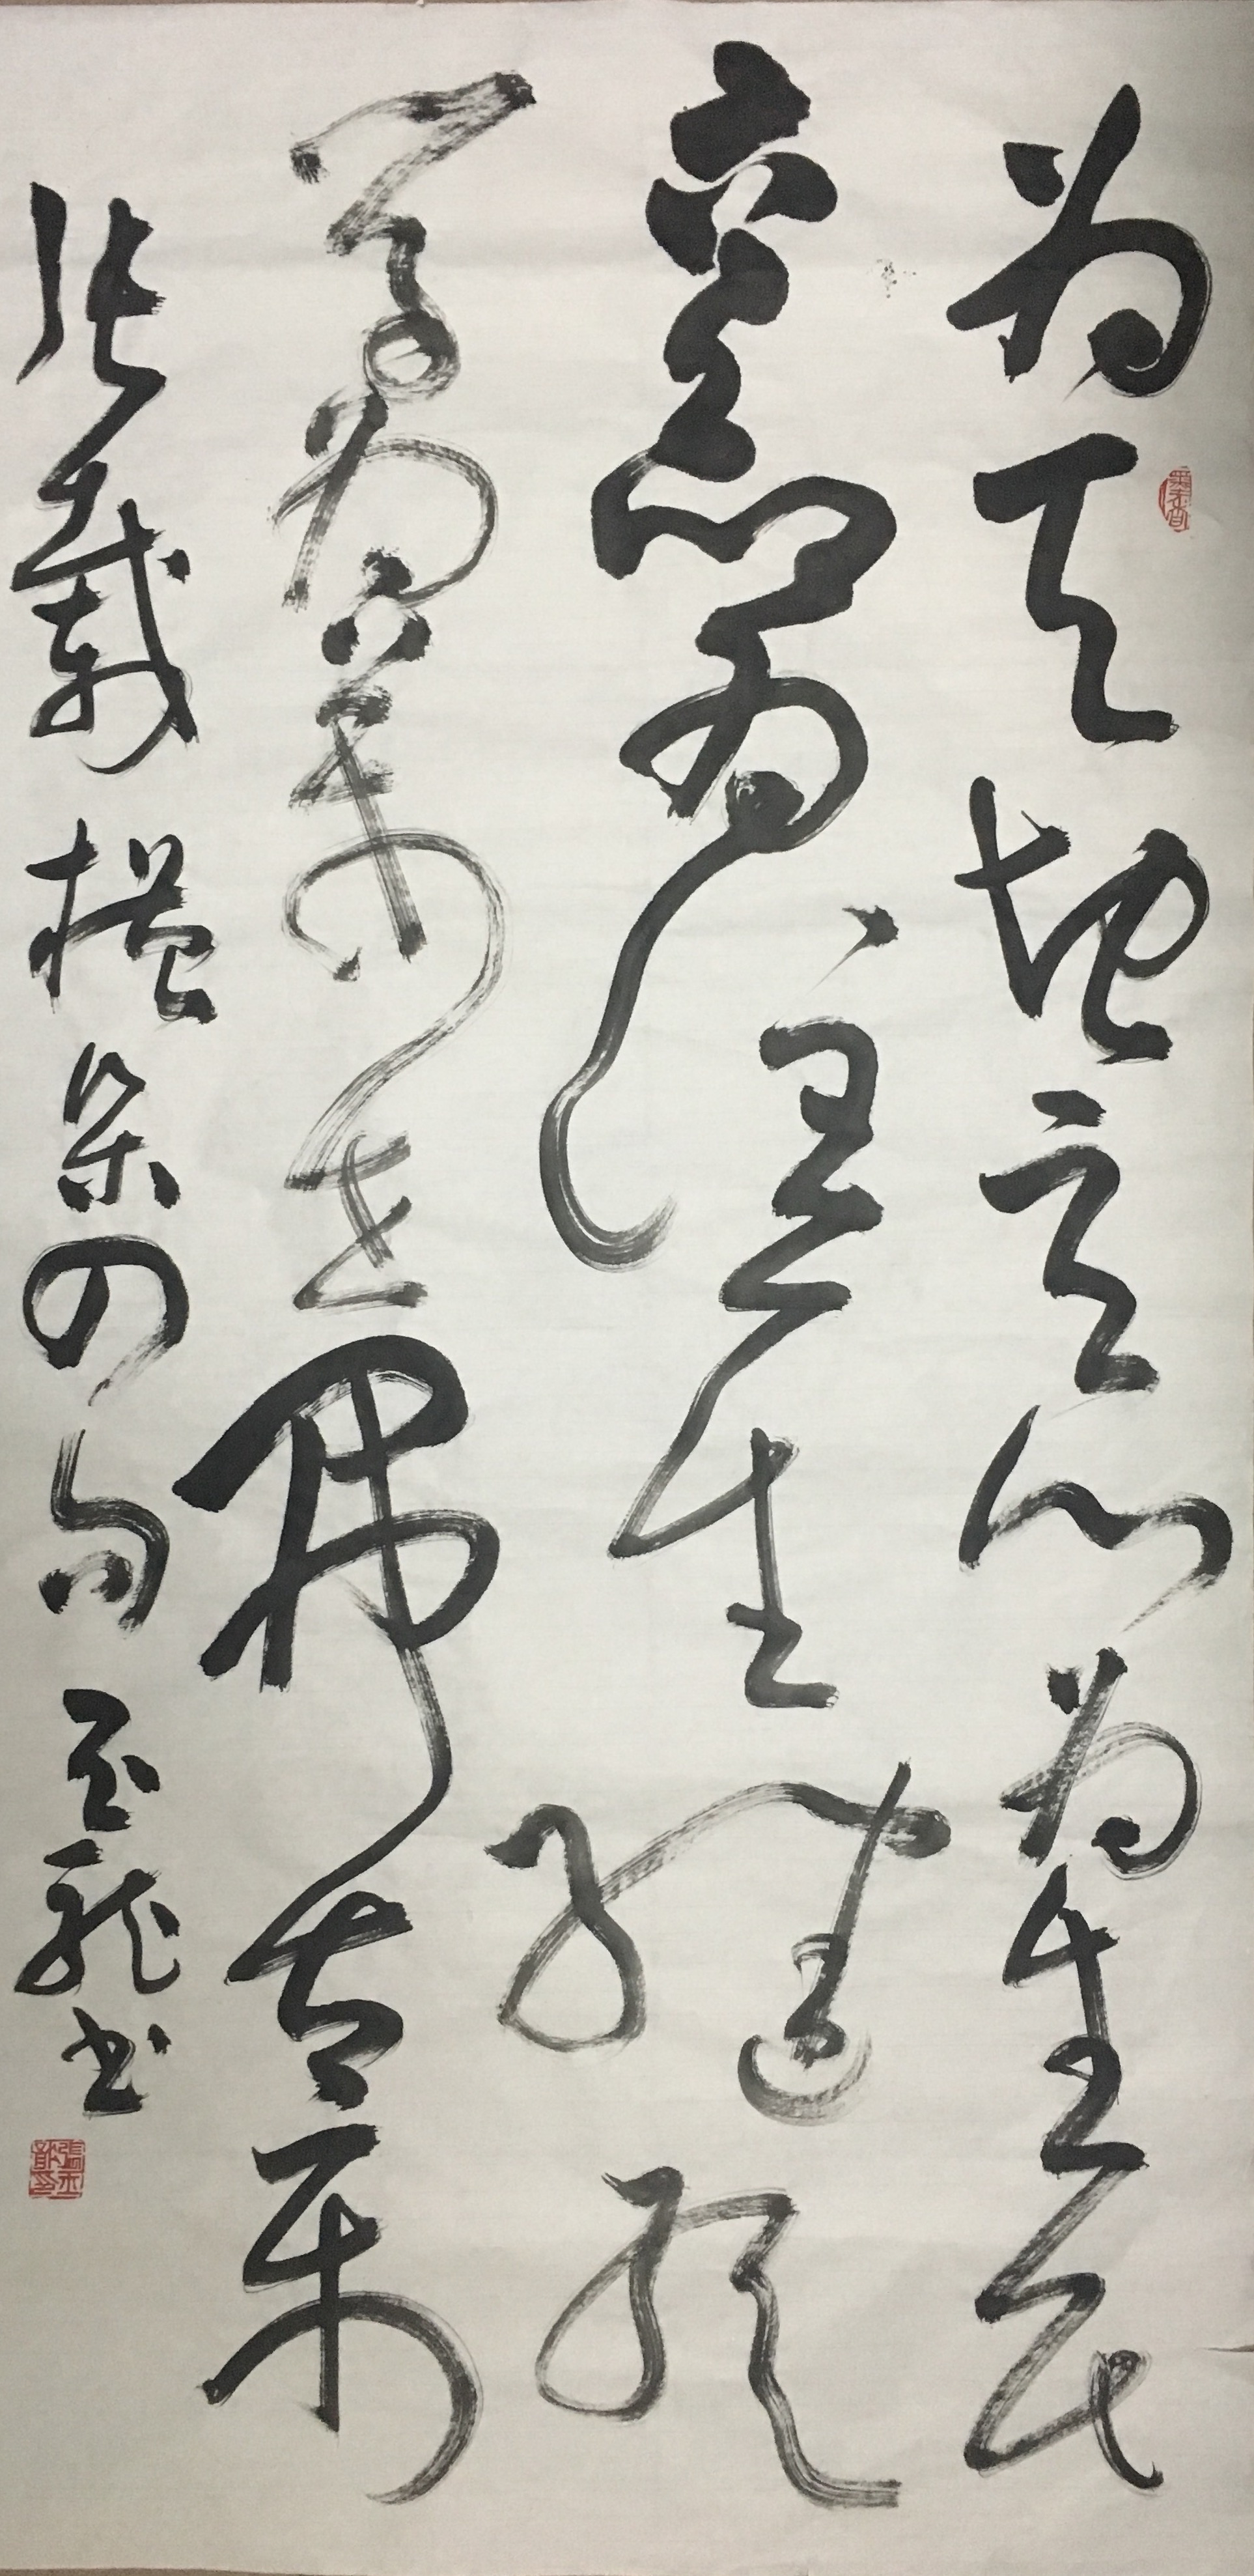 为天地立心为生民
立命为往圣继绝
学为萬世開太平
张载横渠四句 玉龙书